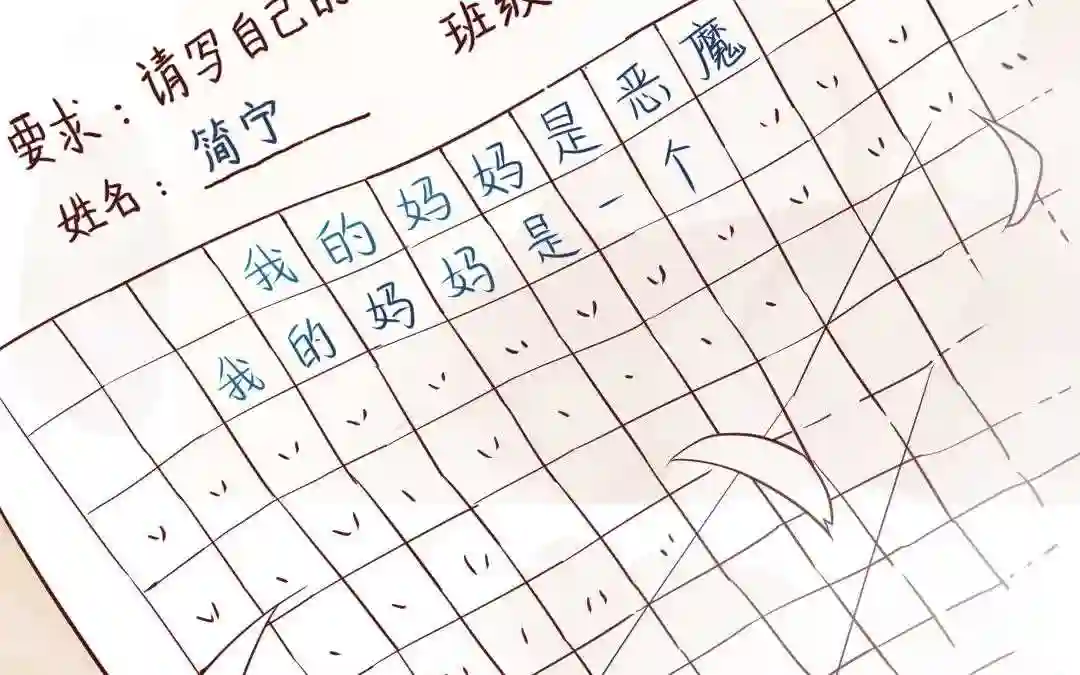 要求：请写自己的
班级
姓名：简宁
我的妈妈是恶魔
我的妈妈是一个